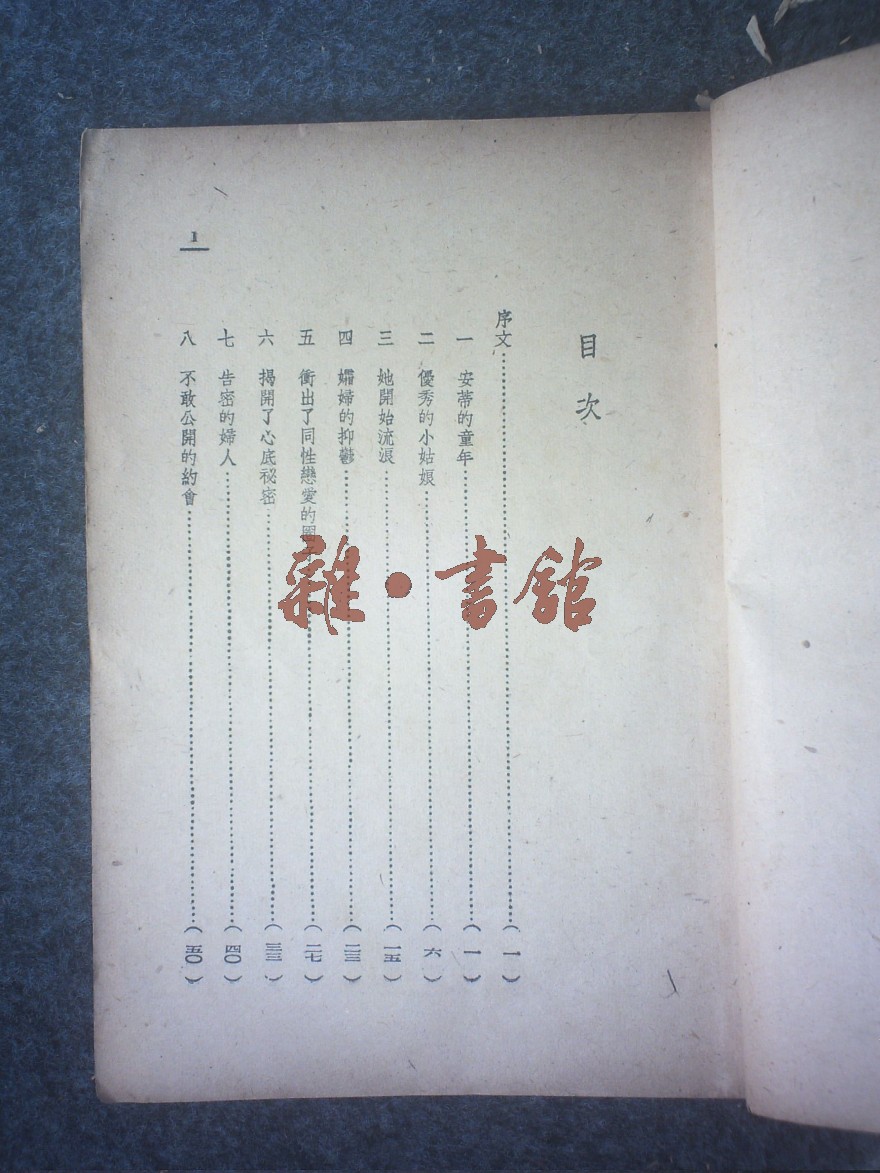 目次
序文……（一）
一 安蒂的童年……（一）
二 優秀的小姑娘……（六）
三 她開始流淚……（一五）
四 孀婦的抑鬱……（二三）
五 衝出了同性戀愛的……（二七）
六 揭開了心底祕密……（三三）
七 告密的婦人……（四〇）
八 不敢公開的約會……（五〇）
1
雜·書館